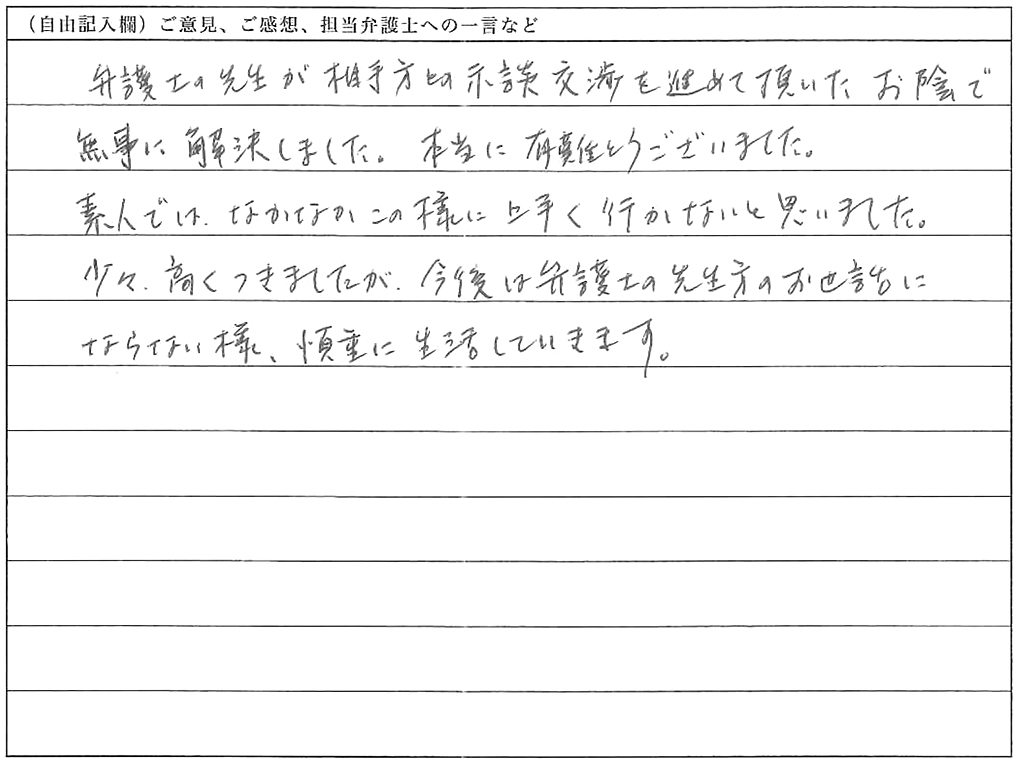 （自由記入欄）ご意見、ご感想、担当弁護士への一言など
弁護士の先生が相手方との示談交渉を進めて頂いたお陰で
無事に解決しました。本当に有難とうございました。
素人では、なかなかこの様に上手く行かないと思いました。
少々、高くつきましたが、今後は弁護士の先生方のお世話に
ならない様、慎重に生活していきます。